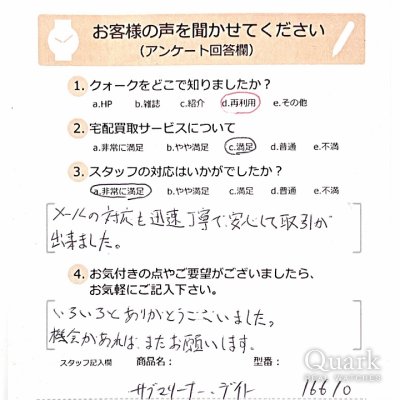 お客様の声を聞かせてください
(アンケート回答欄)
1. クォークをどこで知りましたか？
a.HP b.雑誌 c.紹介 d.再利用 e.その他
2. 宅配買取サービスについて
a.非常に満足 b.やや満足 c.満足 d.普通 e.不満
3. スタッフの対応はいかがでしたか？
a.非常に満足 b.やや満足 c.満足 d.普通 e.不満
メールの対応も迅速丁寧で安心して取引が
出来ました。
4. お気付きの点やご要望がございましたら、
お気軽にご記入下さい。
いろいろとありがとうございました。
機会があれば、またお願いします。
スタッフ記入欄 商品名： 型番：
サブマリーナー・デイト 16610
Quark
REAL WATCHES